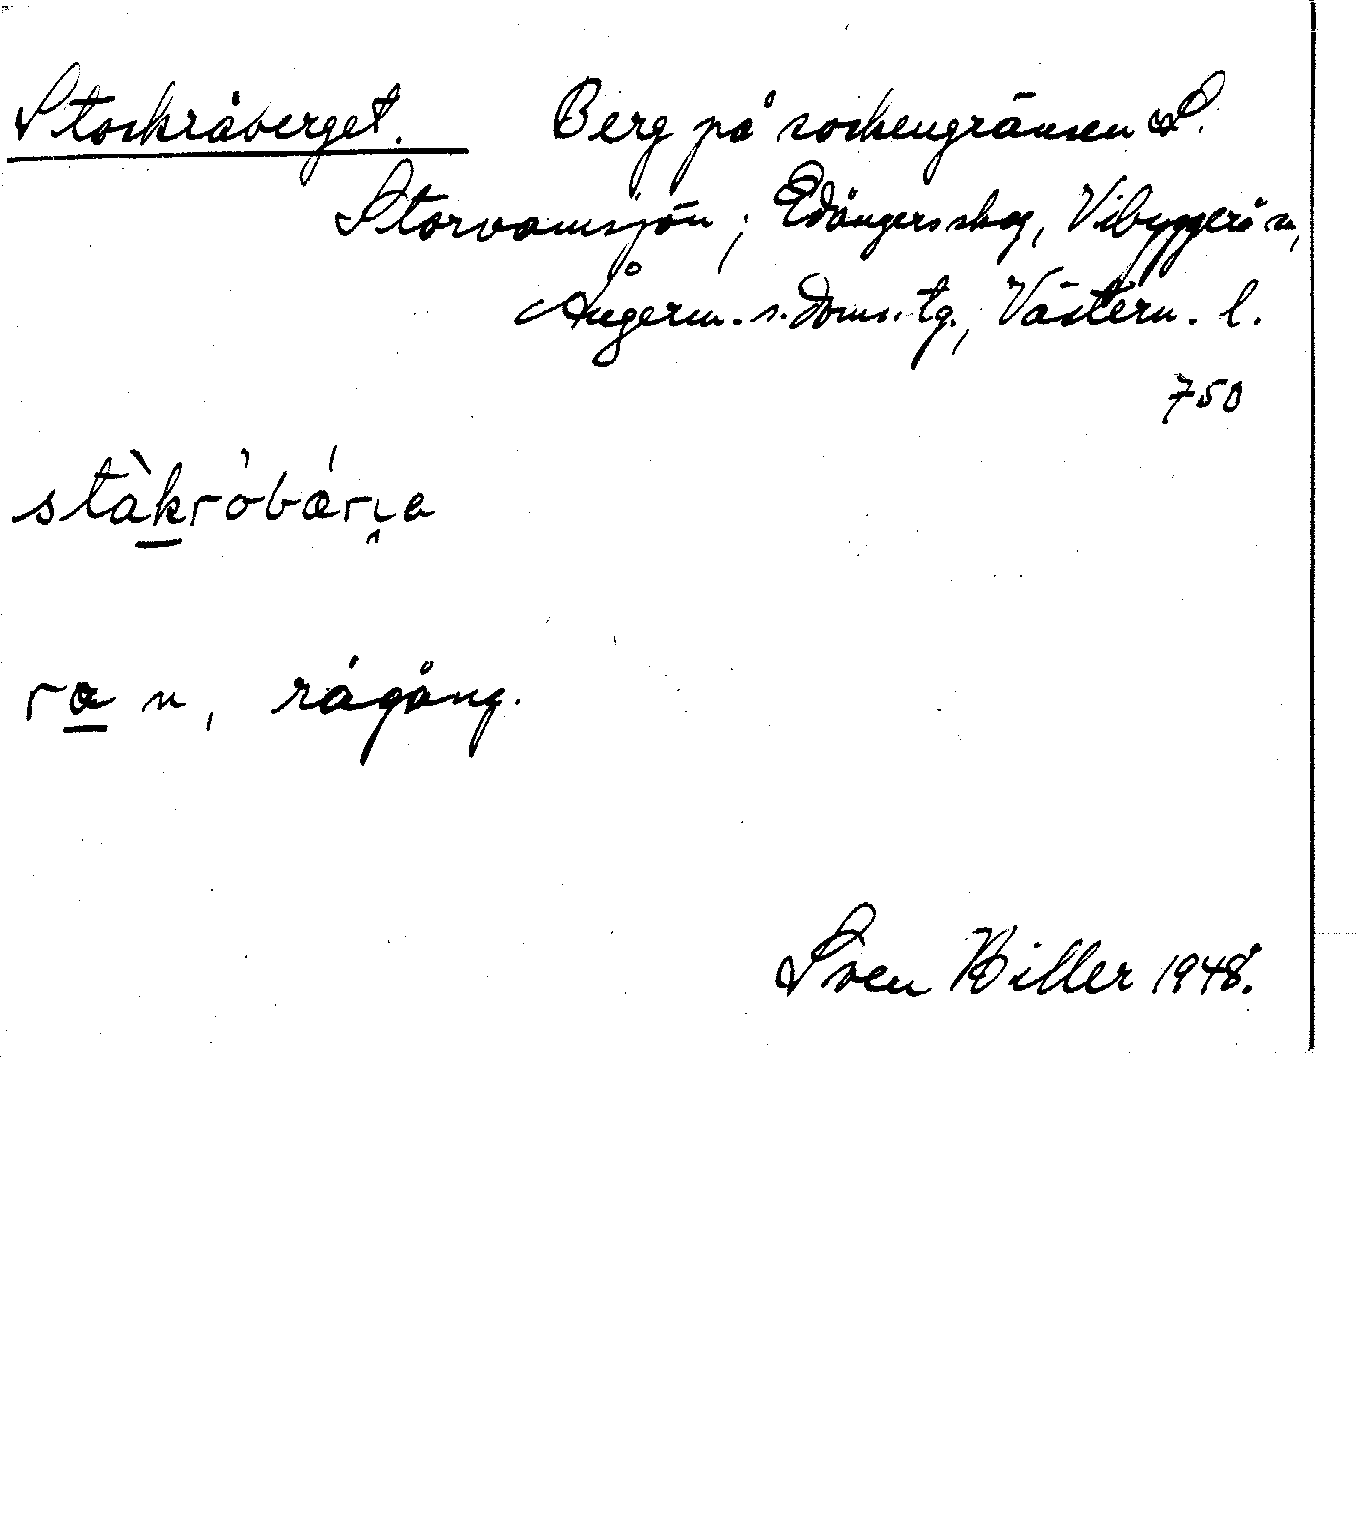 Stockråberget. Berg på sockengränsen S.
Storvamsjön; Edångersskog, Vibyggerå sn,
Ångerm. s. doms. tg., Västern. l.
750
stàkròbárɩa
ra n, rågång.
Sven Hiller 1948.